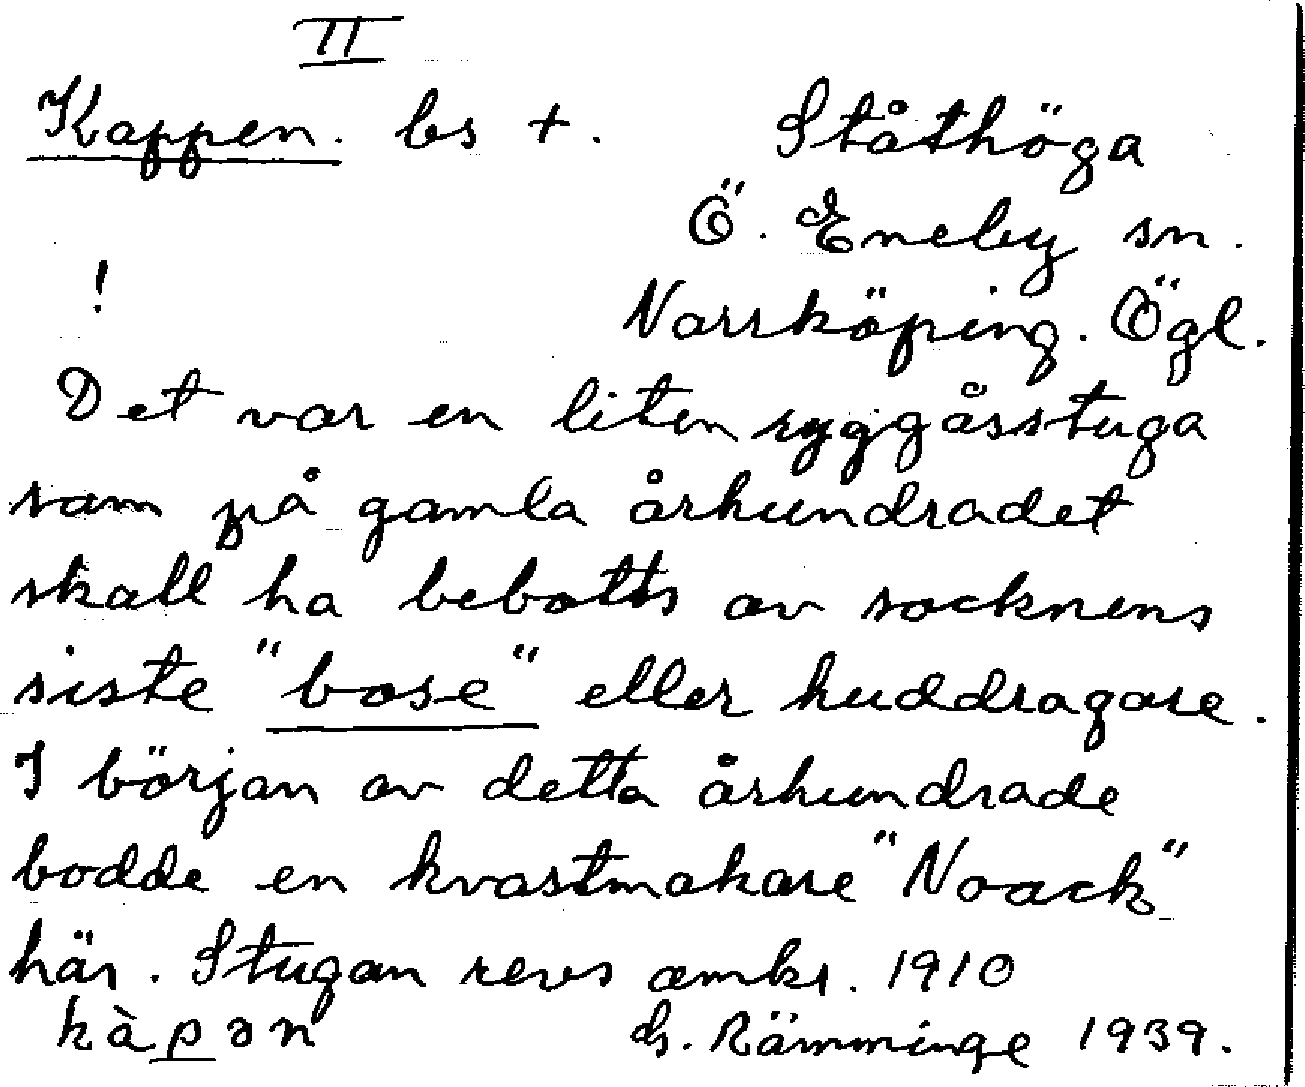 II
Kappen. bs +. Ståthöga
Ö. Eneby sn.
! Norrköping. Ögl.
Det var en liten ryggåsstuga
som på gamla århundradet
skall ha bebotts av socknens
siste "bose" eller huddragare.
I början av detta århundrade
bodde en kvastmakare "Noack"
här. Stugan revs omkr. 1910
kàpən G. Rämminge 1939.